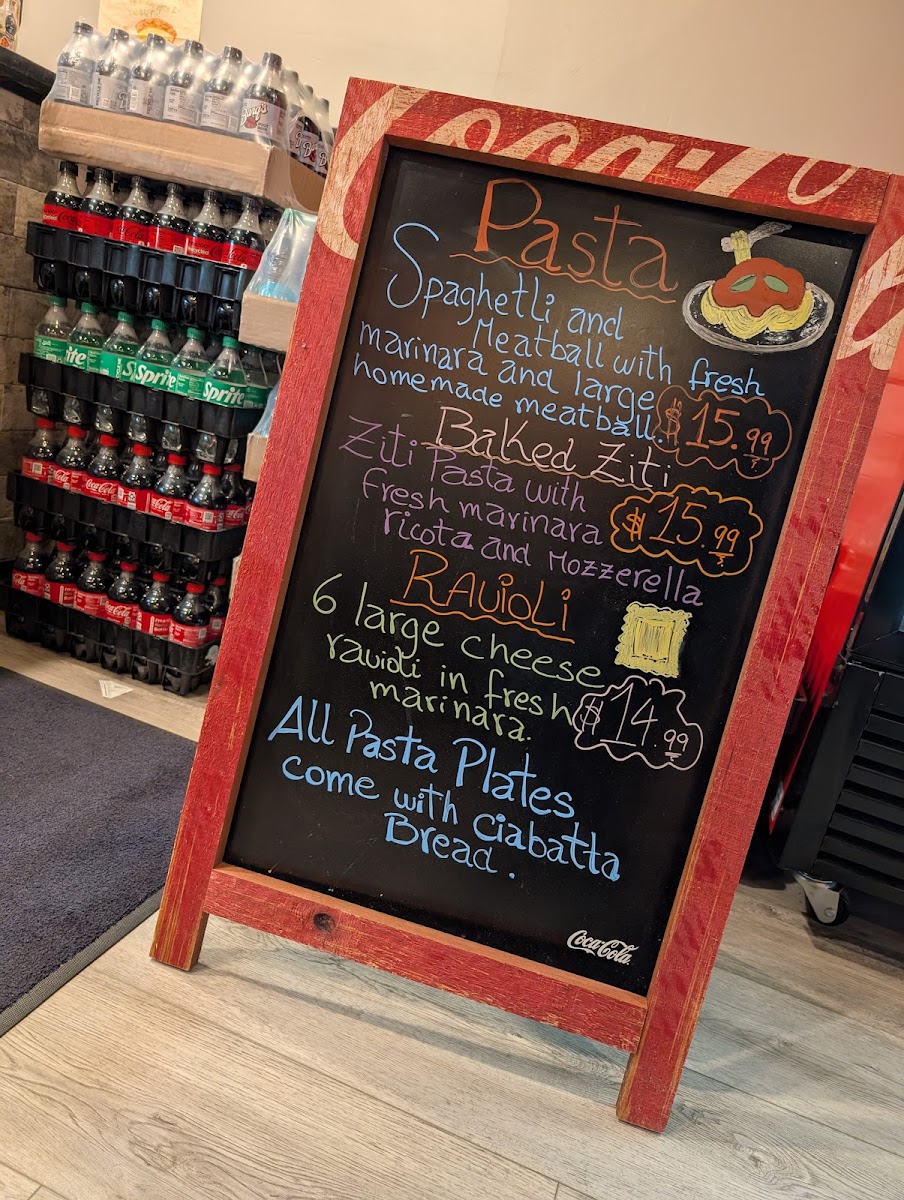 Coca-Co
Pasta
Spaghetti and
Meatball with fresh
marinara and large
homemade meatball.
$15.99
Baked Ziti
Ziti Pasta with
fresh marinara
ricota and Mozzerella
$15.99
RAviOLi
6 large cheese
ravioli in fresh
marinara.
$14.99
All Pasta Plates
come with Ciabatta
Bread.
Coca-Cola
Barq's
Sprite
Sprite
Coca-Cola
Coca-Cola